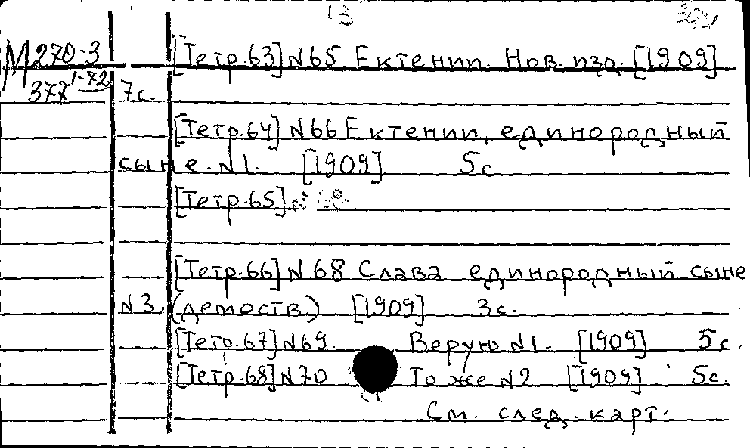 13
М270-3 [Тетр.63] №65 Ектении. Нов. изд. [1909]
377 1-72 7с.
[Тетр.64] №66 Ектении, единородный
сыне №1. [1909] 5с
[Тетр.65] №
[Тетр.66] №68 Слава единородный сыне
№3. (демоств) [1909] 3с.
[Тетр.67] №69. Верую №1. [1909] 5с.
[Тетр.68] №70 То же №2 [1909] 5с.
См. след. карт.